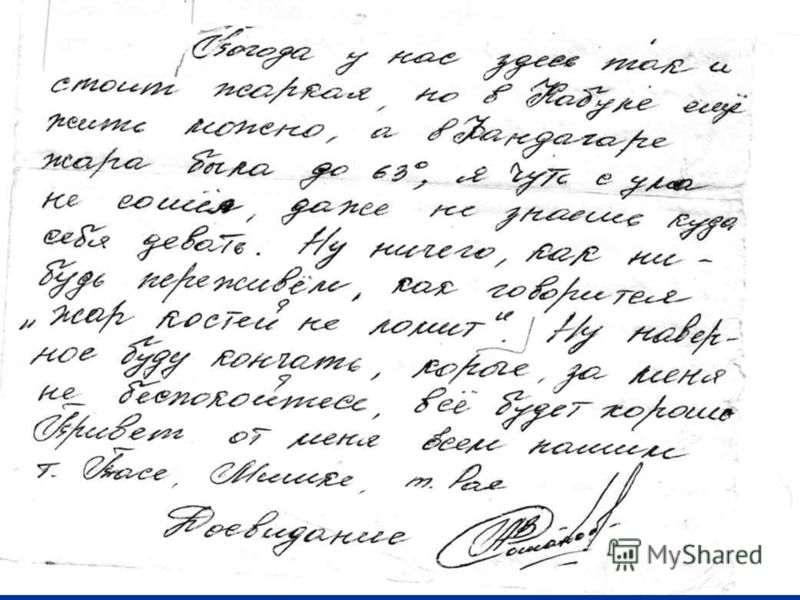 Погода у нас здесь так и
стоит жаркая, но в Кабуле ещё
жить можно, а в Кандагаре
жара была до 63°, я чуть с ума
не сошёл, даже не знаешь куда
себя девать. Ну ничего, как ни-
будь переживём, как говорится
„жар костей не ломит". Ну навер-
ное буду кончать, корые, за меня
не беспокойтесь, всё будет хорошо
Привет от меня всем нашим
т. Тасе, Мишке, т. Рае
Досвидание
MyShared